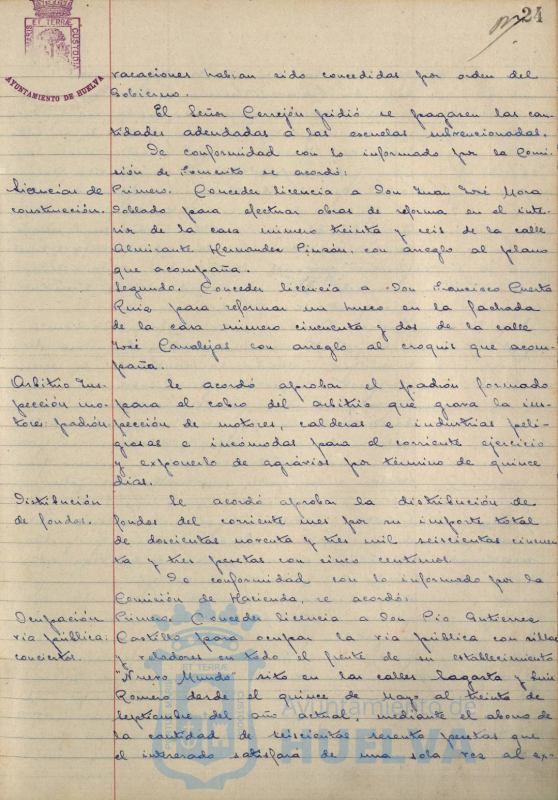 24
vacaciones habian sido concedidas por orden del
Gobierno.
El Señor Cerrejón pidió se pagasen las can-
tidades adeudadas á las escuelas subvencionadas.
De conformidad con lo informado por la Comi-
sión de Fomento se acordó:
Licencias de
construcción.
Primero. Conceder licencia a Don Juan José Mora
Poblado para efectuar obras de reforma en el inte-
rior de la casa número treinta y seis de la calle
Almirante Hernandez Pinzón, con arreglo al plano
que acompaña.
Segundo. Conceder licencia a Don Francisco Cuesta
Ruiz para reformar un hueco en la fachada
de la casa número cincuenta y dos de la calle
José Canalejas con arreglo al croquis que acom-
paña.
Arbitrio Ins-
pección mo-
tores: padrón.
Se acordó aprobar el padrón formado
para el cobro del arbitrio que grava la ins-
pección de motores, calderas e industrias peli-
grosas e incómodas para el corriente ejercicio
y exponerlo de agravios por término de quince
dias.
Distribución
de fondos.
Se acordó aprobar la distribución de
fondos del corriente mes por su importe total
de doscientas noventa y tres mil seiscientas cincuen-
ta y tres pesetas con cinco centimos.
De conformidad con lo informado por la
Comisión de Hacienda, se acordó:
Ocupación
via pública:
conciertos.
Primero. Conceder licencia a Don Pio Gutierrez
Castillo para ocupar la via pública con sillas
y veladores en todo el frente de su establecimiento
"Nuevo Mundo" sito en las calles Sagasta y Luis
Romero desde el quince de Mayo al treinta de
Septiembre del año actual, mediante el abono de
la cantidad de seiscientas sesenta pesetas que
el interesado satisfará de una sola vez al ex-
AYUNTAMIENTO DE HUELVA
Ayuntamiento de
HUELVA